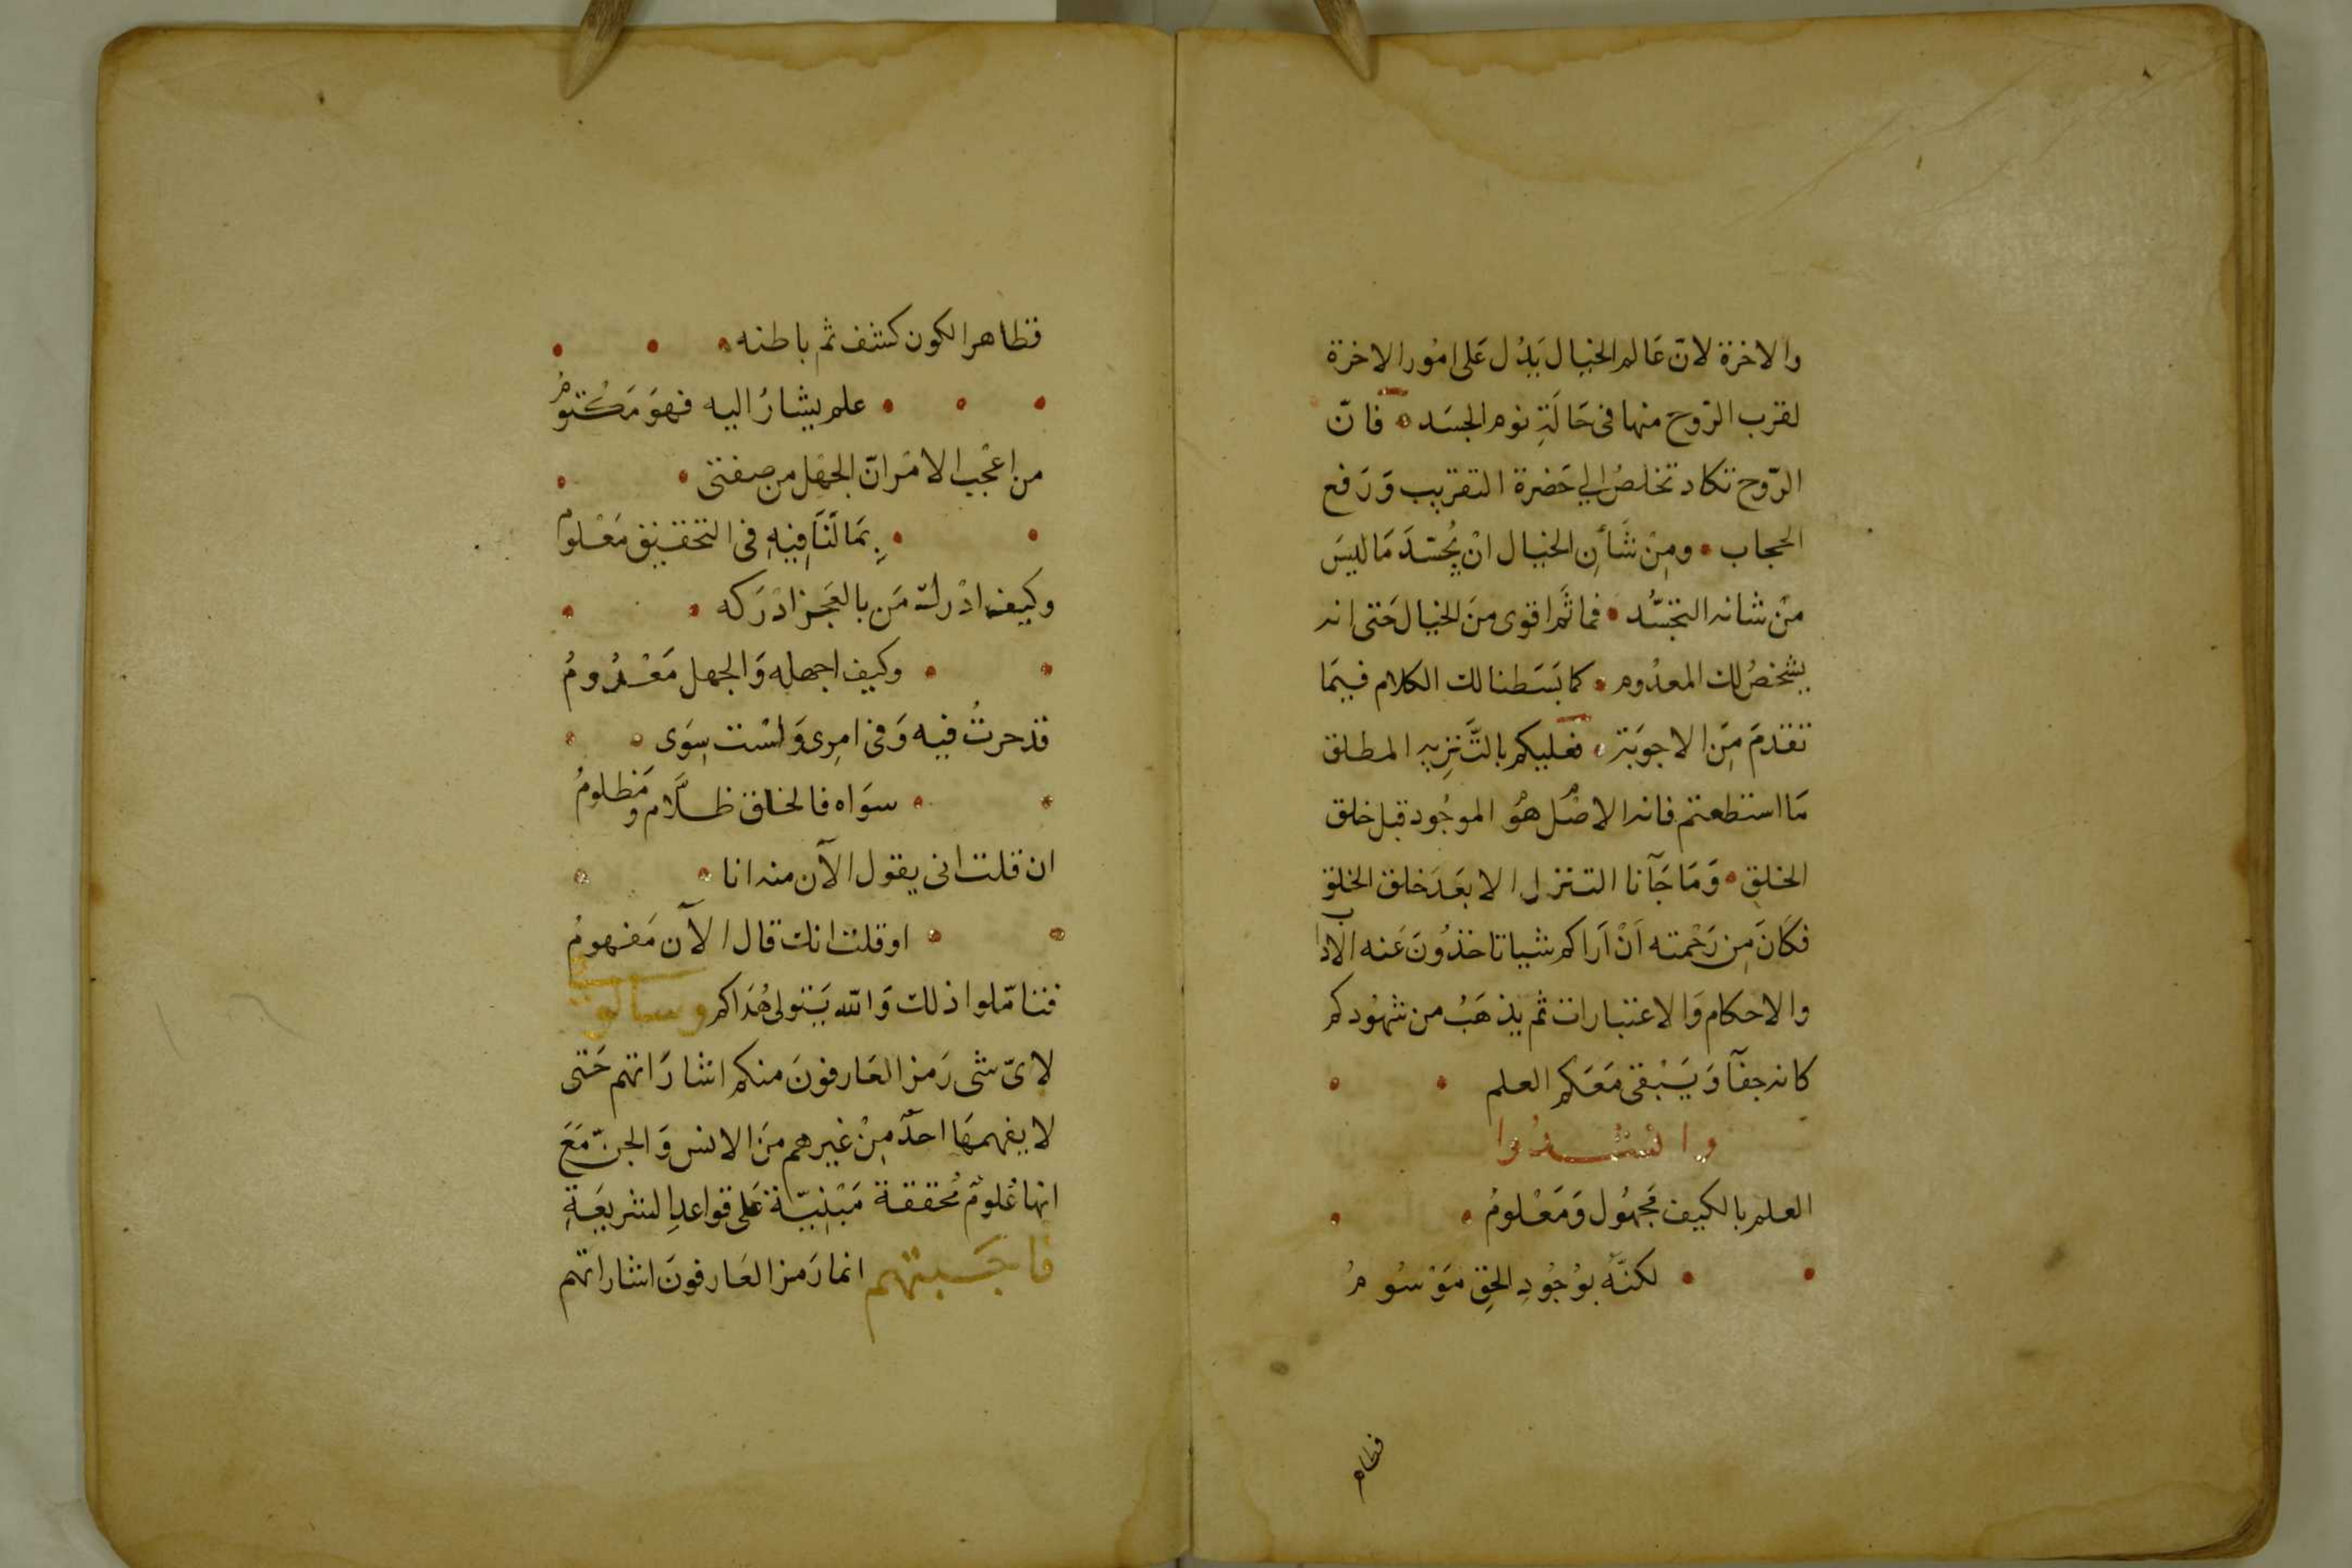 والاخرة لانّ عَالم الخيال يَدُل عَلى امُور الاخرة
لقرب الرّوح منها فى حَالَةِ نوم الجسَد فانّ
الرّوح تكاد تخلصُ الي حَضرة التقريب وَرَفع
الحجاب ومِنْ شَأنِ الخيال انْ يُجسّدَ مَا ليسَ
منْ شانه التجسُّد فما ثَم اقوى منَ الخيال حَتى انه
يشخصُ لك المعدُوم كما بَسَطنا لك الكلام فيمَا
تقدمَ مِنَ الاجوَبة فعليكم بالتَّنزِيه المطلق
مَا استطعتم فانه الاصْل هوُ الموجُود قبل خلق
الخلق وَمَا جَآنا التنزل الا بعَدَ خلق الخلق
فكَانَ مِن رَحْمته اَنْ اَراكم شيا تاخذُونَ عَنه الاداب
والاحكام وَالاعتبارات ثم يذهَبُ من شهُودكم
كانه جفآ وَيَبْقى مَعَكم العلم
وانشدُوا
العلم بالكيف مَجهُول وَمَعْلومُ
لكنَّهُ بوُجُودِ الحِق مَوْسُومُ
فظاهر
فظاهر الكون كشف ثم باطنه
علم يشارُ اليه فهوَ مَكُتومُ
من اعْجب الامْر انّ الجهْل من صفتى
بِمَا لَنَا فِيهِ فى التحقيق مَعْلوم
وكيف ادْرك مَن بالعَجز ادْرَكه
وكيف اجهله وَالجهل مَعْدُومُ
قد حرتُ فيه وَفى امِرى وَلسْت سِوَى
سوَاه فالخلق ظلَّام ومَظلومُ
ان قلت انى يقول الآن منه انا
او قلت انك قال الآن مَفهومُ
فتامّلوا ذلك وَالله يَتولى هُدَاكم وسالونى
لاىّ شى رَمز العَارفونَ منكم اشارَاتهم حَتى
لا يفهمهَا احدٌ مِنْ غيرهم منَ الانس وَالجنّ مَعَ
انها عُلومٌ مُحققة مَبْنِيّة عَلى قواعدِ الشريعَةِ
فاجَبتهم انما رَمز العَارفونَ اشاراتهم